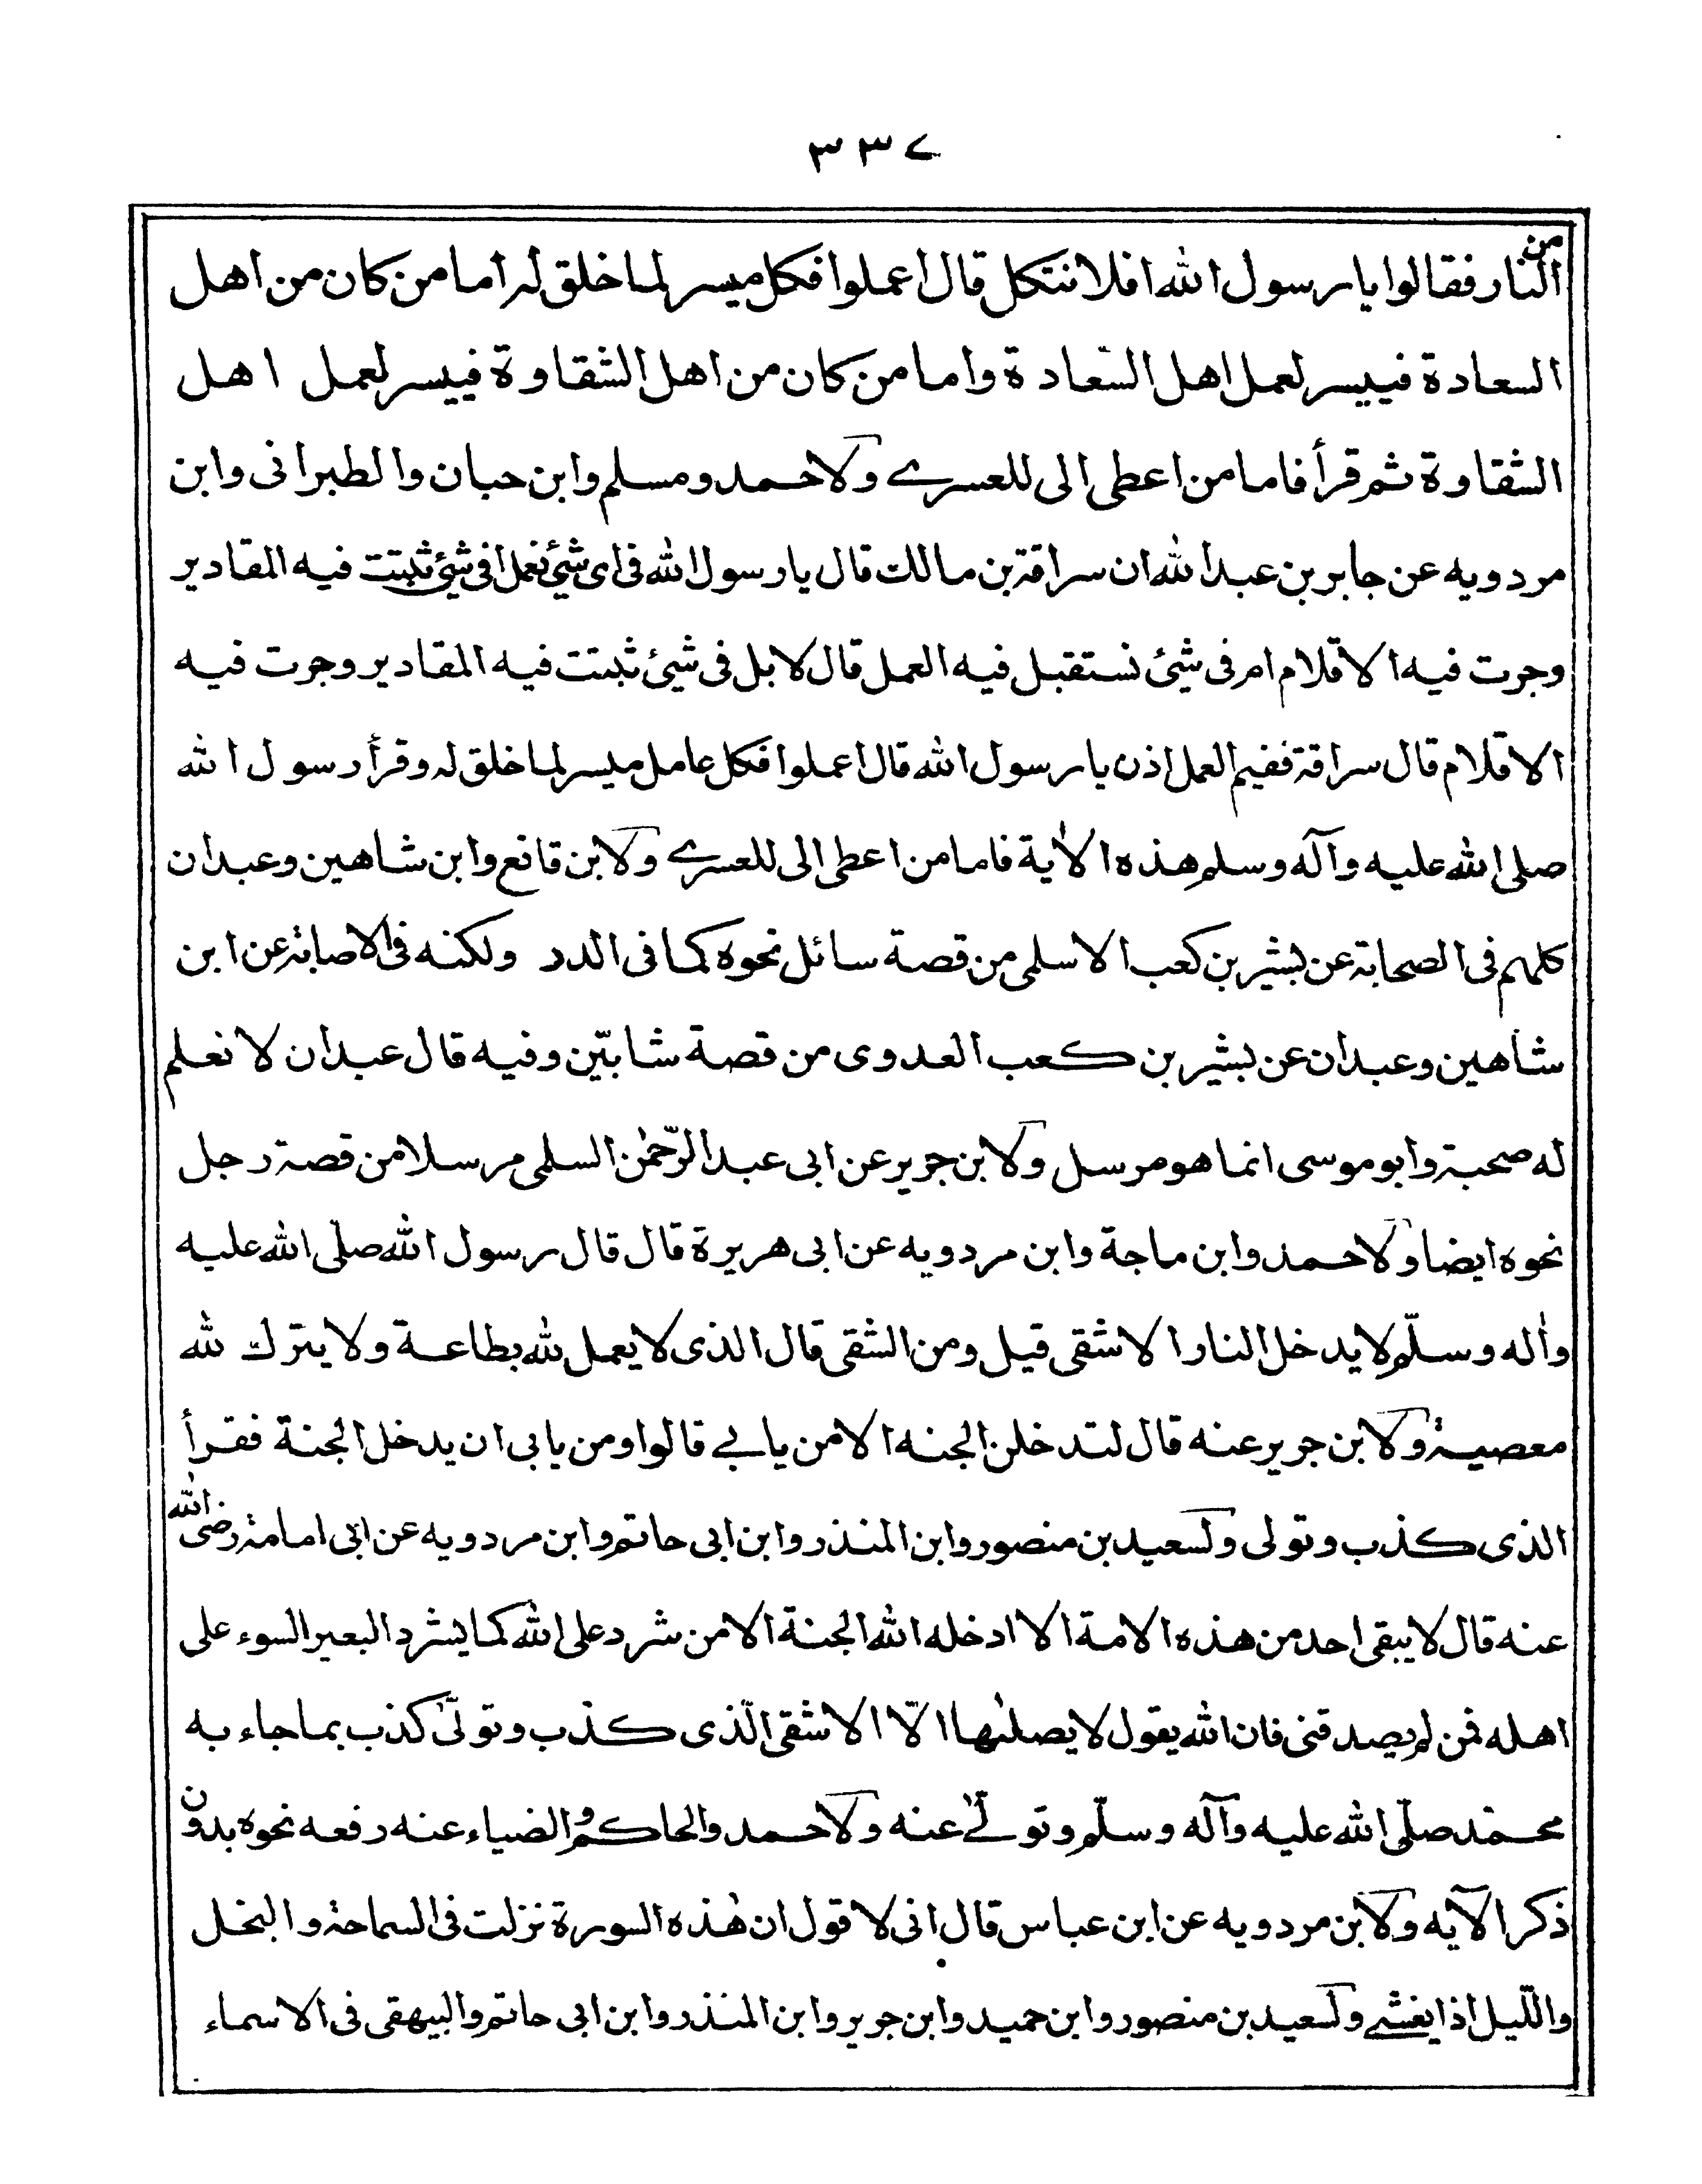 ٣٣٧
من النار فقالوا يا رسول الله افلا نتكل قال اعملوا فكل ميسر لما خلق له أما من كان من اهل
السعادة فييسر لعمل اهل السعادة واما من كان من اهل الشقاوة فييسر لعمل اهل
الشقاوة ثم قرأ فاما من اعطى الى للعسرے ولاحمد ومسلم وابن حبان والطبرانى وابن
مردويه عن جابر بن عبد الله ان سراقة بن مالك قال يا رسول الله فى اى شيئ نعمل افى شيئ ثبتت فيه المقادير
وجرت فيه الاقلام ام فى شيئ نستقبل فيه العمل قال لا بل فى شيئ ثبتت فيه المقادير وجرت فيه
الاقلام قال سراقة ففيم العمل اذن يا رسول الله قال اعملوا فكل عامل ميسر لما خلق له وقرأ رسول الله
صلى الله عليه وآله وسلم هذه الاٰية فاما من اعطى الى للعسرے ولابن قانع وابن شاهين وعبدان
كلهم فى الصحابة عن بشير بن كعب الاسلمى من قصة سائل نحوه كما فى الدد ولكنه فى الاصابة عن ابن
شاهين وعبدان عن بشير بن كعب العدوى من قصة شابّين وفيه قال عبدان لا نعلم
له صحبة وابو موسى انما هو مرسل ولابن جرير عن ابى عبد الرّحمٰن السلمى مرسلا من قصة رجل
نحوه ايضا ولاحمد وابن ماجة وابن مردويه عن ابى هريرة قال قال رسول الله صلّى الله عليه
واٰله وسلّم لا يدخل النار الا شقى قيل ومن الشقى قال الذى لا يعمل لله بطاعة ولا يترك لله
معصية ولابن جرير عنه قال لتدخلن الجنه الا من يابے قالوا ومن يابى ان يدخل الجنة فقرأ
الذى كذب وتولى ولسعيد بن منصور وابن المنذر وابن ابى حاتم وابن مردويه عن ابى امامة رضى الله
عنه قال لا يبقى احد من هذه الامة الا ادخله الله الجنة الا من شرد على الله كما يشرد البعير السوء على
اهله فمن لم يصدقنى فان الله يقول لا يصلٰىها الّا الاشقى الّذى كذب وتولّىٰ كذب بما جاء به
محمّد صلّى الله عليه وآله وسلّم وتولّےٰ عنه ولاحمد والحاكم والضياء عنه رفعه نحوه بدون
ذكر الآيه ولابن مردويه عن ابن عباس قال انى لا قول ان هٰذه السورة نزلت فى السماحة والبخل
واللّيل اذا يغشے ولسعيد بن منصور وابن حميد وابن جرير وابن المنذر وابن ابى حاتم والبيهقى فى الاسماء